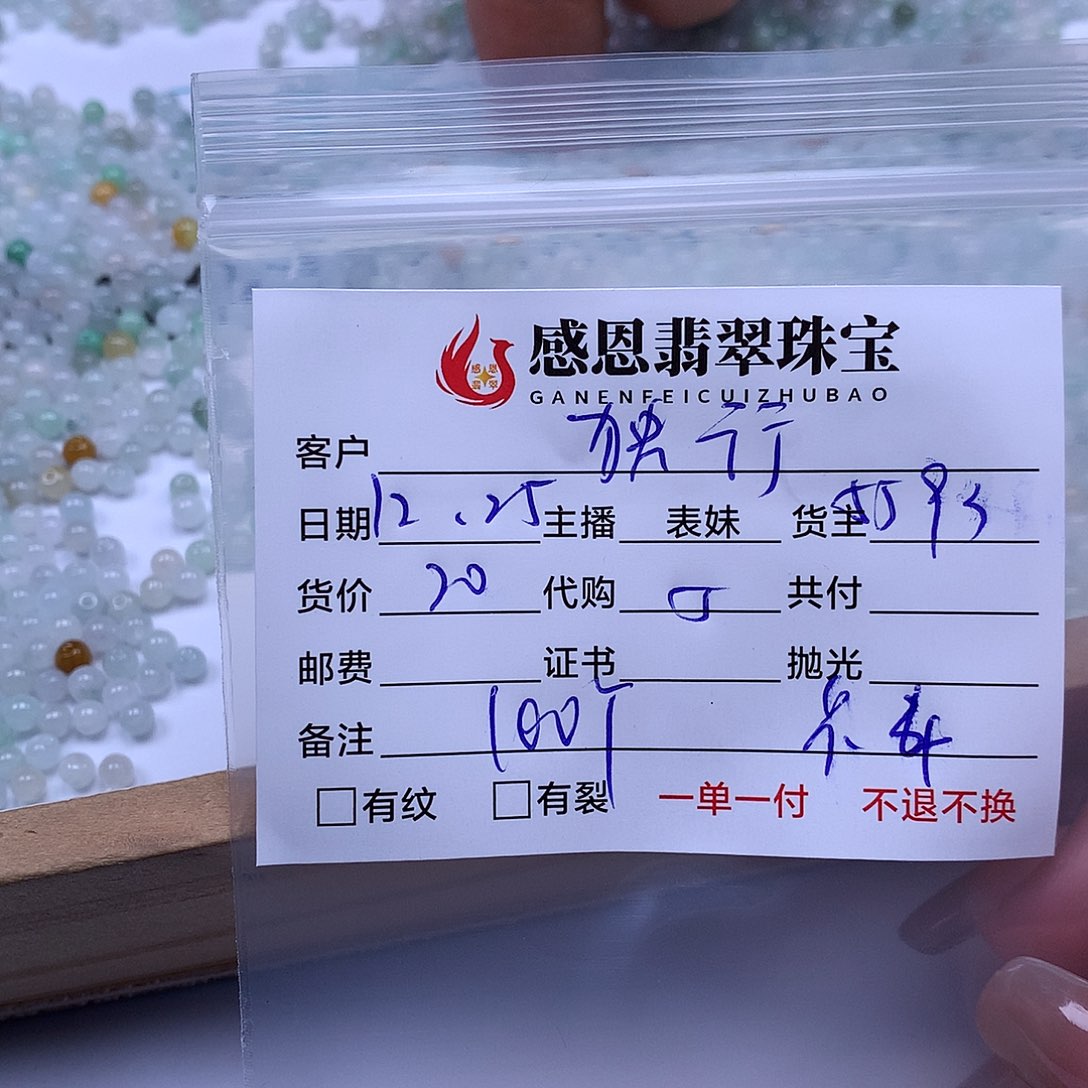 感恩翡翠珠宝
GANENFEICUIZHUBAO
客户 独行
日期 12.25 主播 表妹 货主 5593
货价 20 代购 5 共付
邮费 证书 抛光
备注 100个
有纹 有裂 一单一付 不退不换